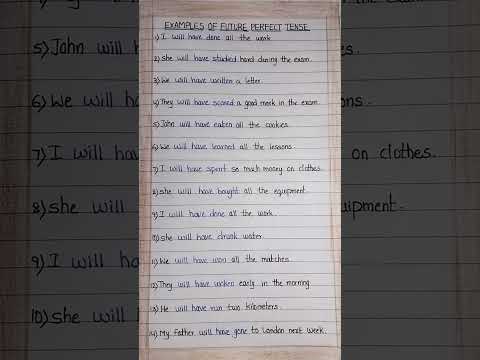 EXAMPLES OF FUTURE PERFECT TENSE
1) I will have done all the work.
2) She will have studied hard during the exam.
3) We will have written a letter.
4) They will have scored a good mark in the exam.
5) John will have eaten all the cookies.
6) We will have learned all the lessons.
7) I will have spent so much money on clothes.
8) she will have bought all the equipment.
9) I will have done all the work.
10) she will have drunk water.
11) We will have won all the matches.
12) They will have woken early in the morning
13) He will have run two kilometers.
14) My father will have gone to London next week.
5) John will
6) We will
7) I will
on clothes.
8) she will
9) I will
10) she will